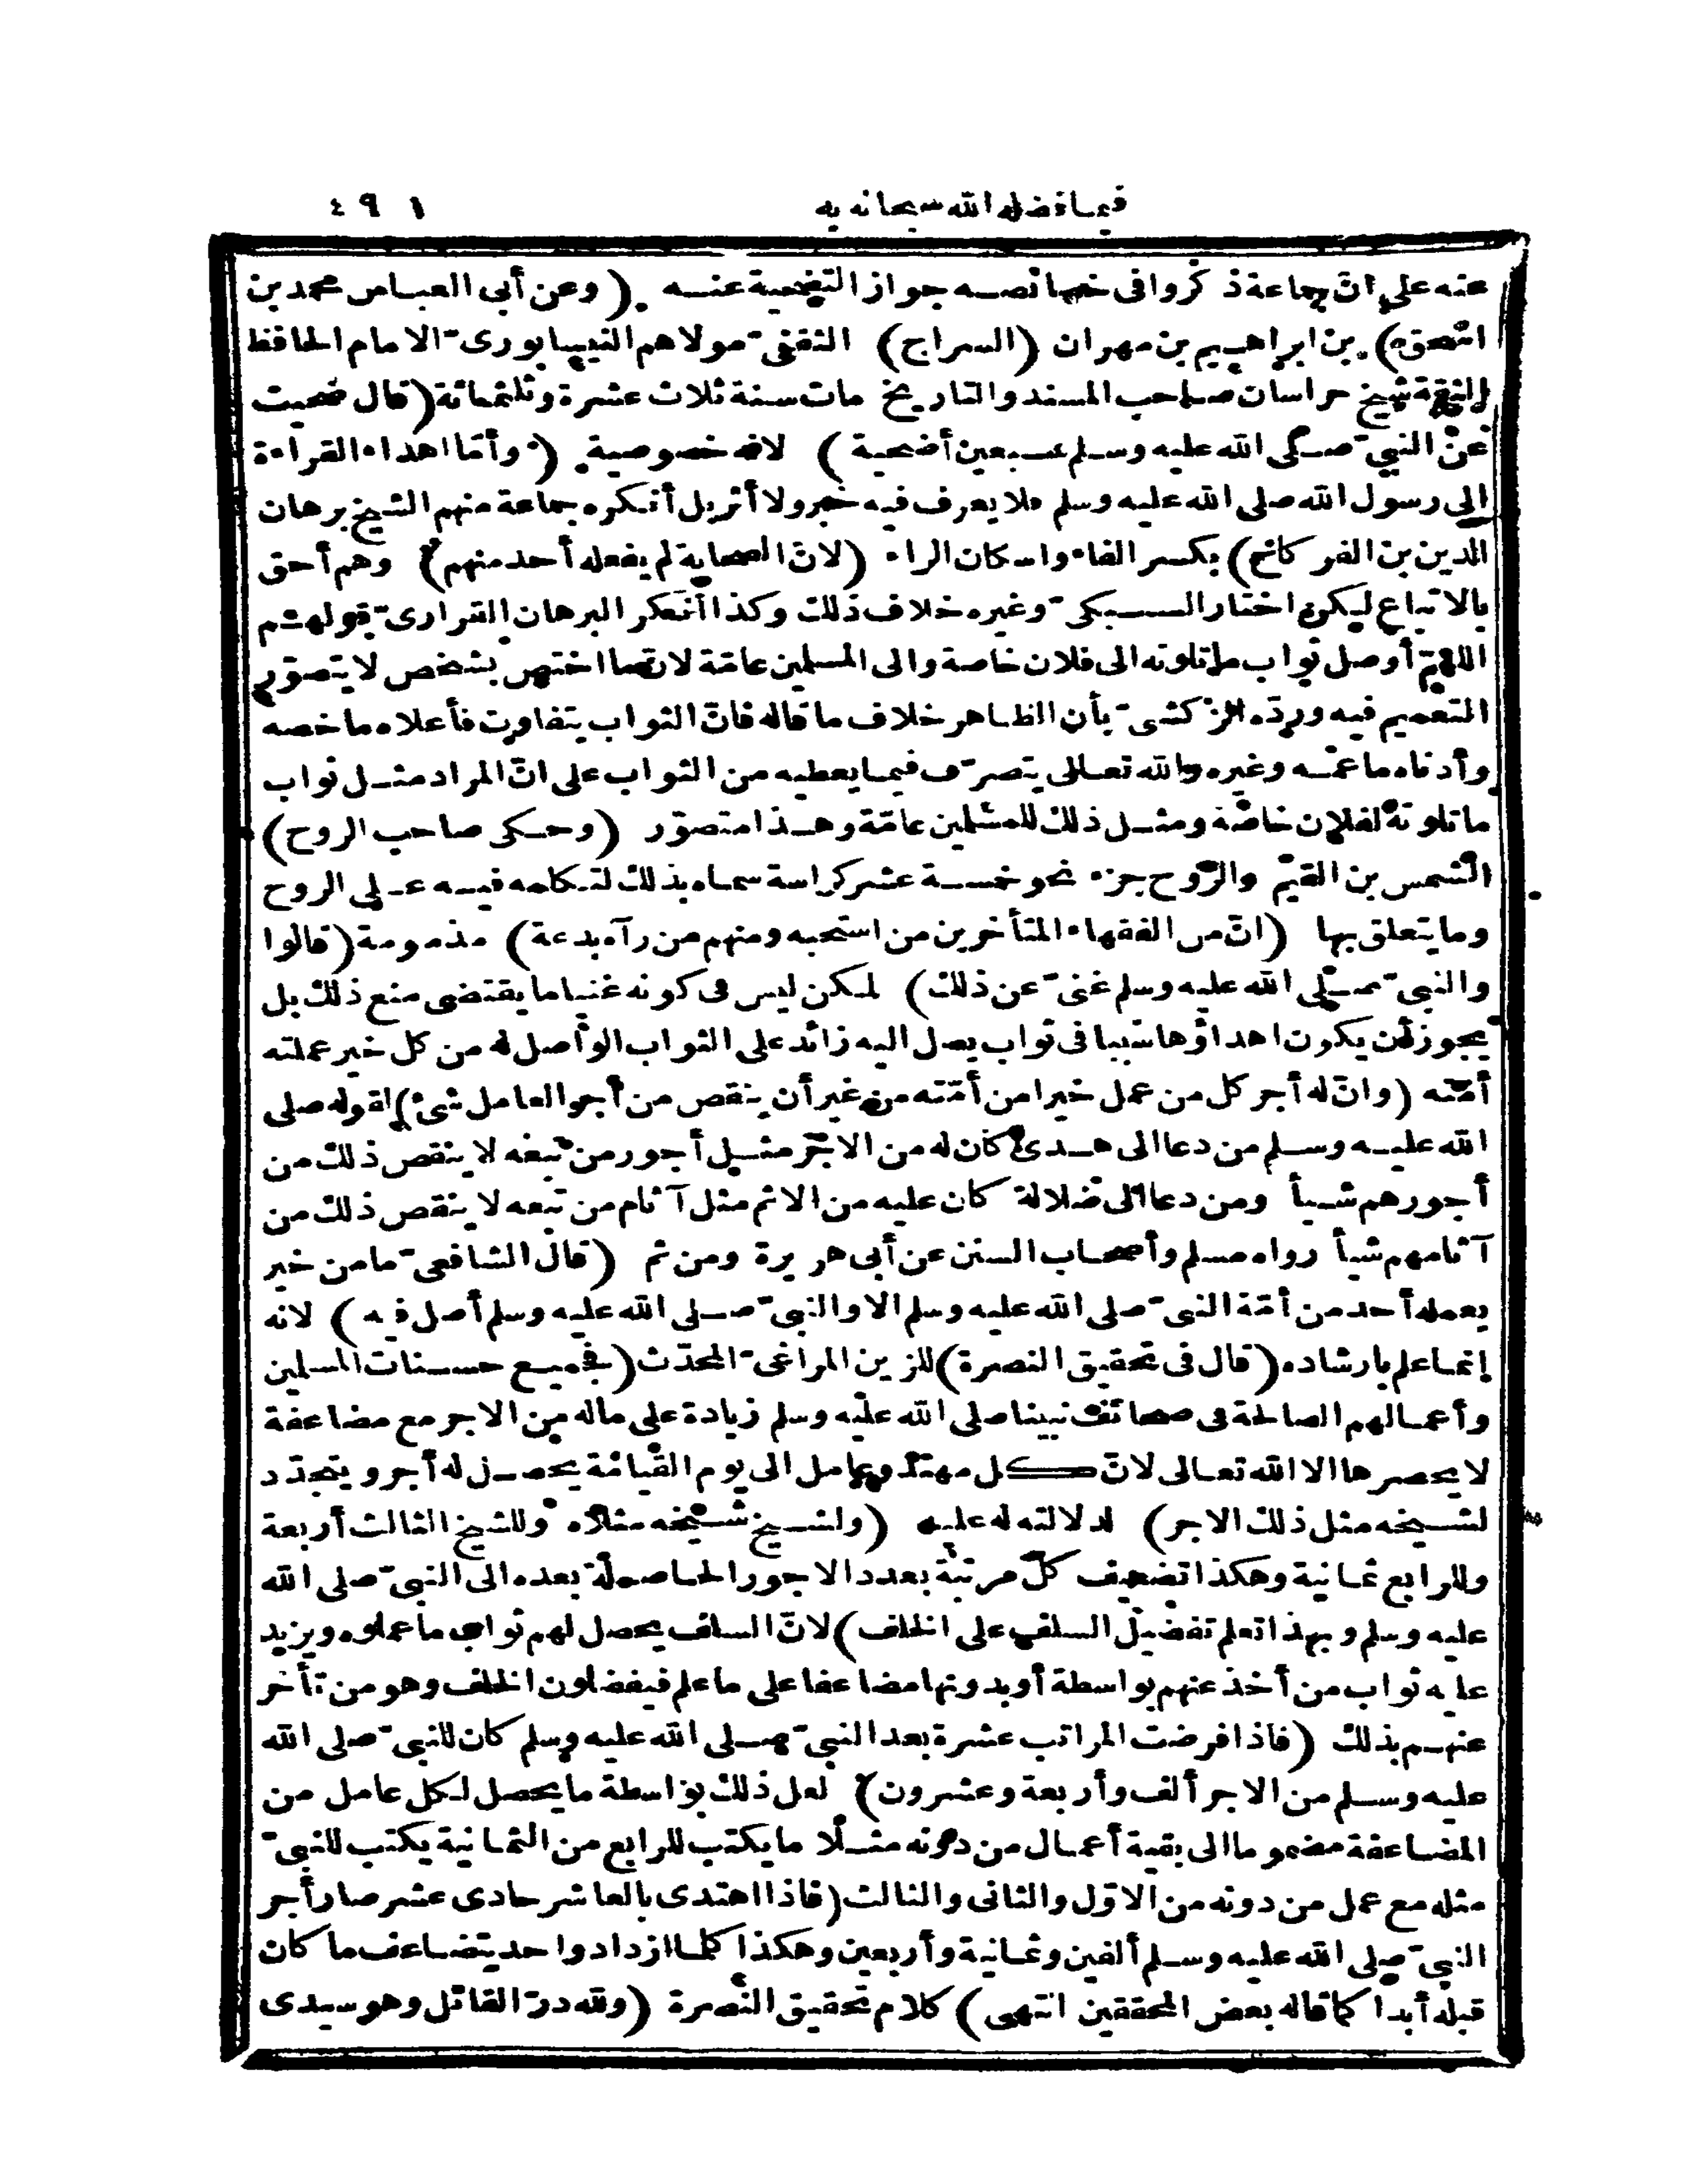 فيما فضله الله سبحانه به ٤٩١
عنه على انّ جماعة ذكروا فى خصائصه جواز التضحية عنه (وعن أبى العباس محمد بن
اسحق) بن ابراهيم بن مهران (السراج) الثقفىّ مولاهم النيسابورىّ الامام الحافظ
الثقة شيخ خراسان صاحب المسند والتاريخ مات سنة ثلاث عشرة وثلثمائة (قال ضحيت
عن النبىّ صلى الله عليه وسلم سبعين أضحية) لانه خصوصية (وأمّا اهداء القراءة
الى رسول الله صلى الله عليه وسلم فلا يعرف فيه خبر ولا أثر بل أنكره جماعة منهم الشيخ برهان
الدين بن الفركاح) بكسر الفاء واسكان الراء (لانّ الصحابة لم يفعله أحد منهم) وهم أحق
بالاتباع ليكن اختار السبكىّ وغيره خلاف ذلك وكذا أنكر البرهان الفزارىّ قولهم
اللهمّ أوصل ثواب ما تلوته الى فلان خاصة والى المسلمين عامّة لانّ ما اختص بشخص لا يتصوّر
التعميم فيه وردّه الزركشىّ بأن الظاهر خلاف ما قاله فانّ الثواب يتفاوت فأعلاه ما خصه
وأدناه ما عمّه وغيره والله تعالى يتصرّف فيما يعطيه من الثواب على انّ المراد مثل ثواب
ما تلوته لفلان خاصّة ومثل ذلك للمسلمين عامّة وهذا متصوّر (وحكى صاحب الروح)
الشمس بن القيم والرّوح جزء نحو خمسة عشر كراسة سماه بذلك لتكلمه فيه على الروح
وما يتعلق بها (انّ من الفقهاء المتأخرين من استحبه ومنهم من رآه بدعة) مذمومة (قالوا
والنبىّ صلى الله عليه وسلم غنىّ عن ذلك) لكن ليس فى كونه غنيا ما يقتضى منع ذلك بل
يجوز أن يكون اهداؤها سببا فى ثواب يصل اليه زائد على الثواب الواصل له من كل خير عملته
أمّته (وانّ له أجر كل من عمل خيرا من أمّته من غير أن ينقص من أجر العامل شئ) لقوله صلى
الله عليه وسلم من دعا الى هدى كان له من الاجر مثل أجور من تبعه لا ينقص ذلك من
أجورهم شيأ ومن دعا الى ضلالة كان عليه من الاثم مثل آثام من تبعه لا ينقص ذلك من
آثامهم شيأ رواه مسلم وأصحاب السنن عن أبى هريرة ومن ثم (قال الشافعىّ ما من خير
يعمله أحد من أمّة النبىّ صلى الله عليه وسلم الا والنبىّ صلى الله عليه وسلم أصل فيه) لانه
إنما علم بارشاده (قال فى تحقيق النصرة) للزين المراغىّ المحدّث (فجميع حسنات المسلمين
وأعمالهم الصالحة فى صحائف نبينا صلى الله عليه وسلم زيادة على ماله من الاجر مع مضاعفة
لا يحصرها الا الله تعالى لانّ كل مهتد وعامل الى يوم القيامة يحصل له أجر ويتجدّد
لشيخه مثل ذلك الاجر) لدلالته له عليه (ولشيخ شيخه مثلاه وللشيخ الثالث أربعة
وللرابع ثمانية وهكذا تضعيف كلّ مرتبة بعدد الاجور الحاصلة بعده الى النبىّ صلى الله
عليه وسلم وبهذا تعلم تفضيل السلف على الخلف) لانّ السلف يحصل لهم ثواب ما عملوه ويزيد
عليه ثواب من أخذ عنهم بواسطة أو بدونها مضاعفا على ما علم فيفضلون الخلف وهو من تأخر
عنهم بذلك (فاذا فرضت المراتب عشرة بعد النبىّ صلى الله عليه وسلم كان للنبىّ صلى الله
عليه وسلم من الاجر ألف وأربعة وعشرون) لعل ذلك بواسطة ما يحصل لكل عامل من
المضاعفة مضموما الى بقية أعمال من دونه مثلا ما يكتب للرابع من الثمانية يكتب للنبىّ
مثله مع عمل من دونه من الاوّل والثانى والثالث (فاذا اهتدى بالعاشر حادى عشر صار أجر
النبىّ صلى الله عليه وسلم ألفين وثمانية وأربعين وهكذا كلما ازداد واحد يتضاعف ما كان
قبله أبدا كما قاله بعض المحققين انتهى) كلام تحقيق النصرة (ولله درّ القائل وهو سيدى